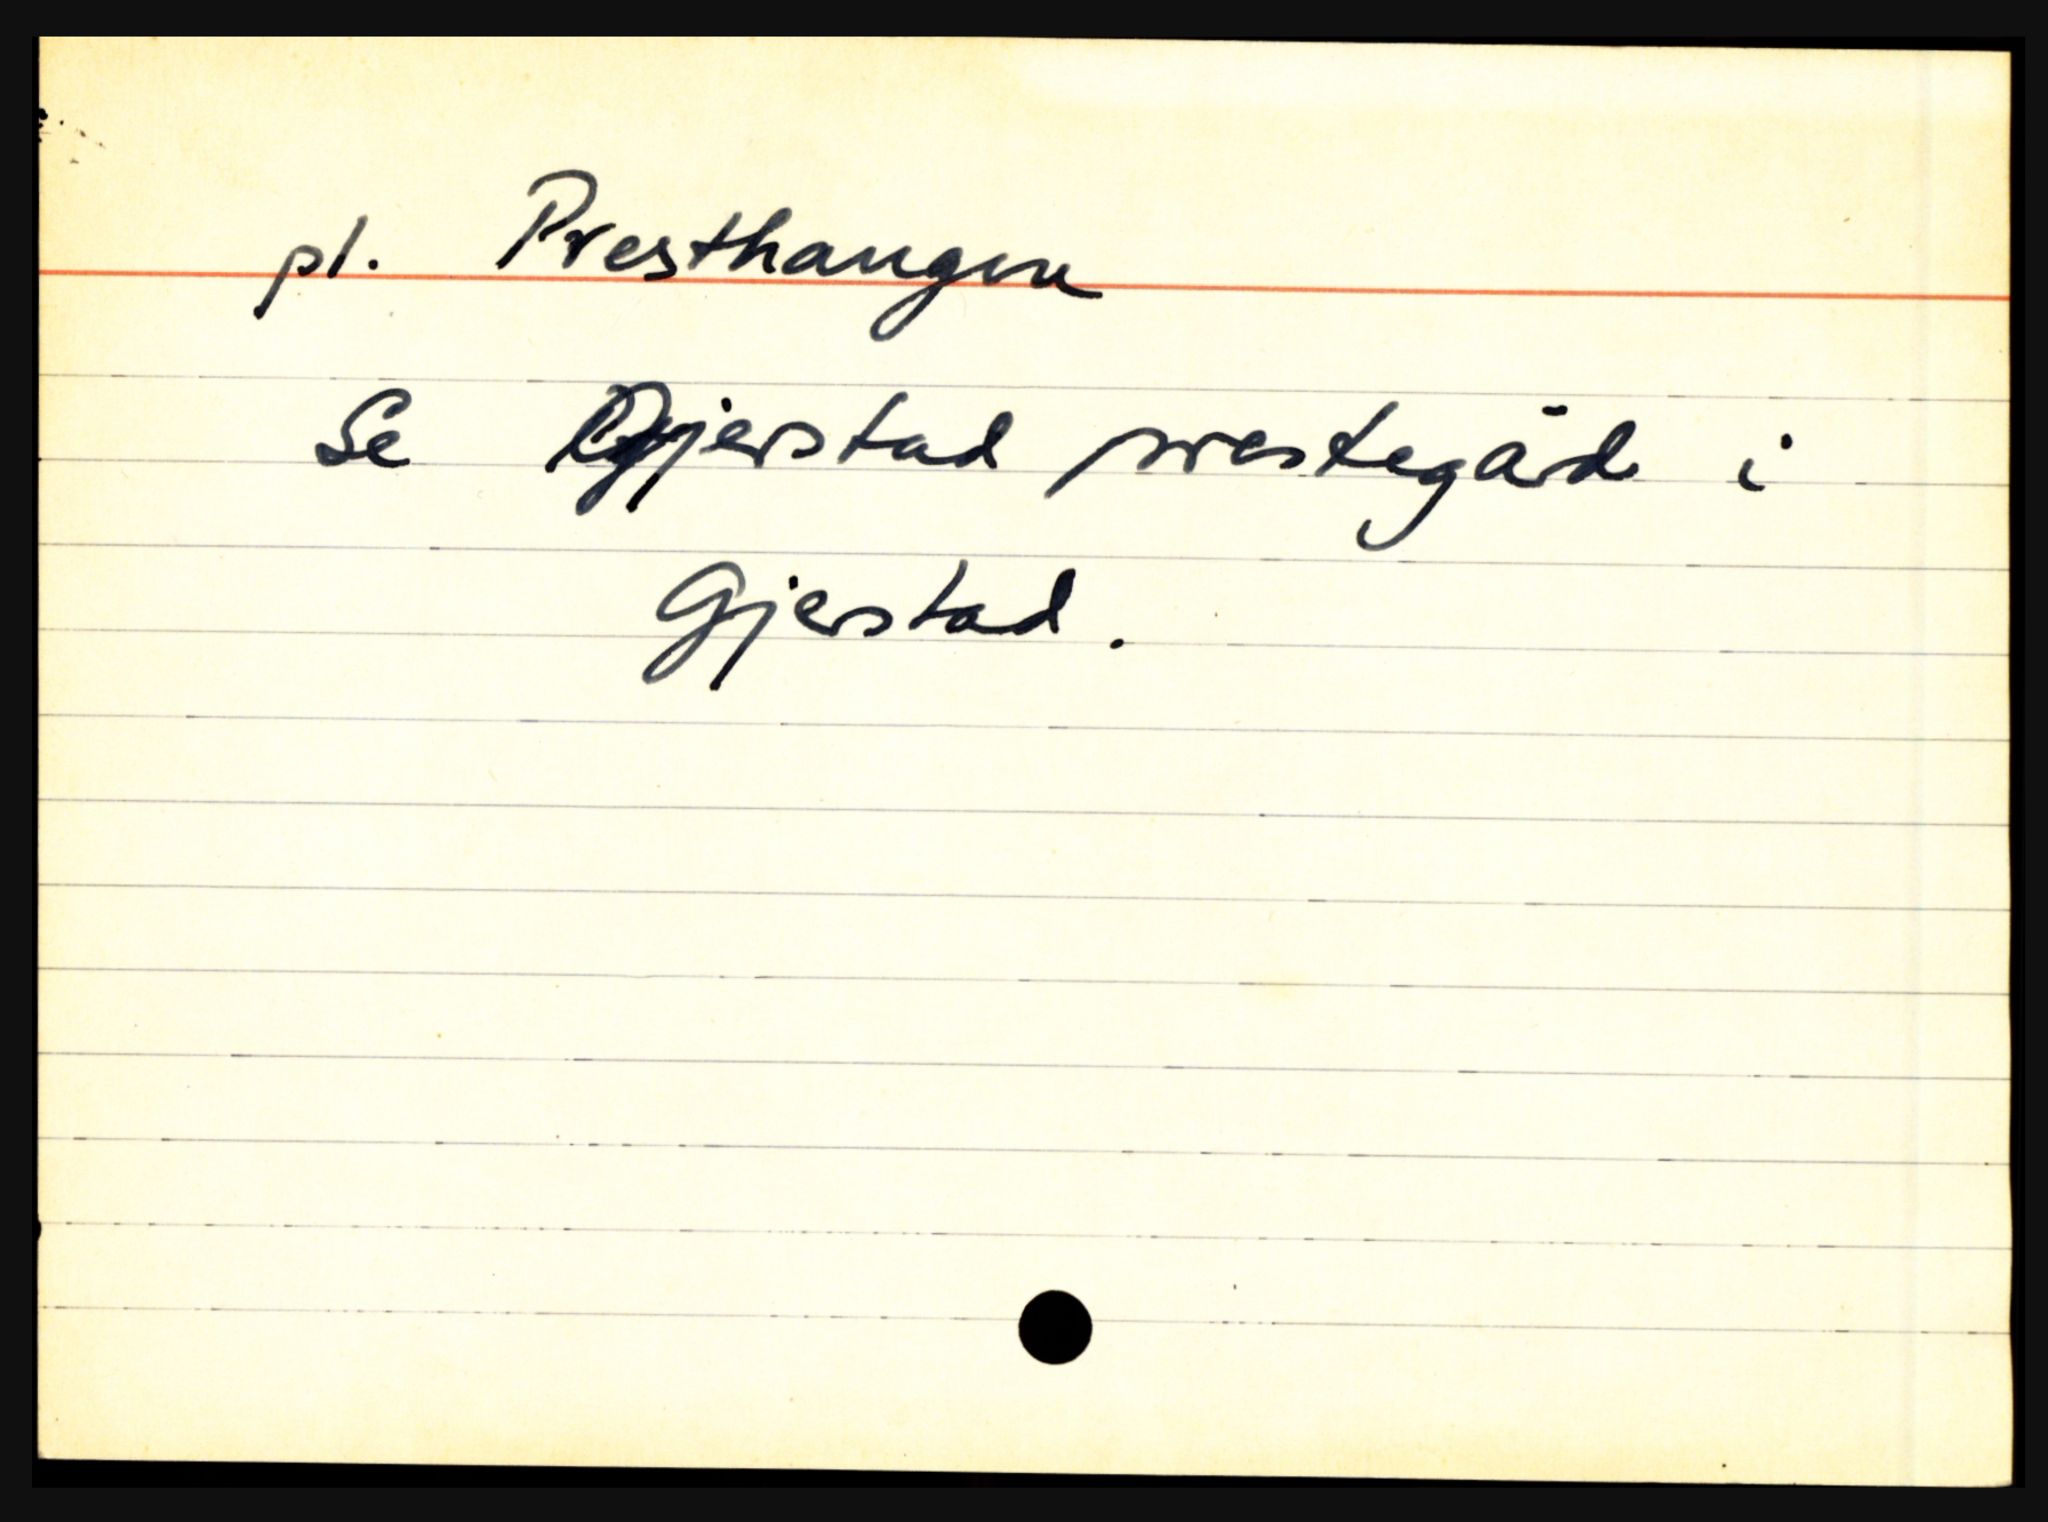 pl. Presthaugen
Se Gjerstad prestegård i
Gjerstad.